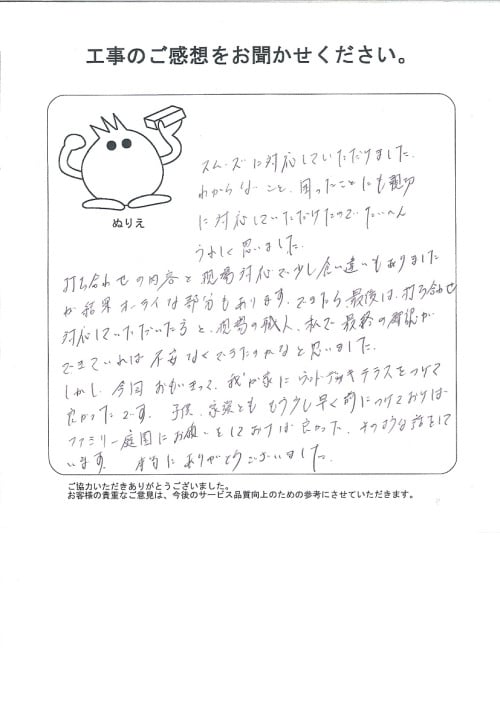 工事のご感想をお聞かせください。
ぬりえ
スムーズに対応していただけました。
わからないこと、困ったことにも親切
に対応していただけたのでたいへん
うれしく思いました。
打ち合わせの内容と現場対応で少し食い違いもありました
が結果オーライな部分もあります。できたら最後は、打ち合わせ
対応していただいた方と、現場の職人、私で最終の確認が
できていれば不安なくできたのかなと思いました。
しかし、今回おもいきって、我が家にウッドデッキテラスをつけて
良かったです。子供、家族とももう少し早く前につけておけば
ファミリー庭園にお願いをしておけば良かった、そのような話をして
います。本当にありがとうございました。
ご協力いただきありがとうございました。
お客様の貴重なご意見は、今後のサービス品質向上のための参考にさせていただきます。